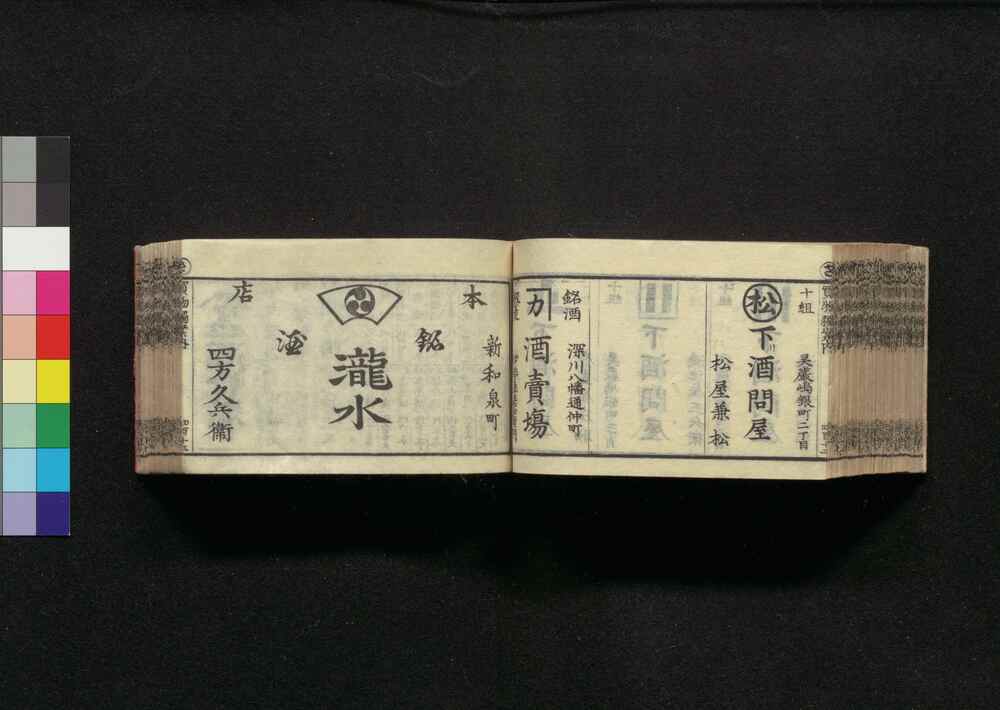 十組
呉嚴嶋銀町二丁目
松
下酒問屋
松屋兼松
銘酒
深川八幡通仲町
カ
酒賣場
本
店
新和泉町
銘
酒
瀧水
四方久兵衛